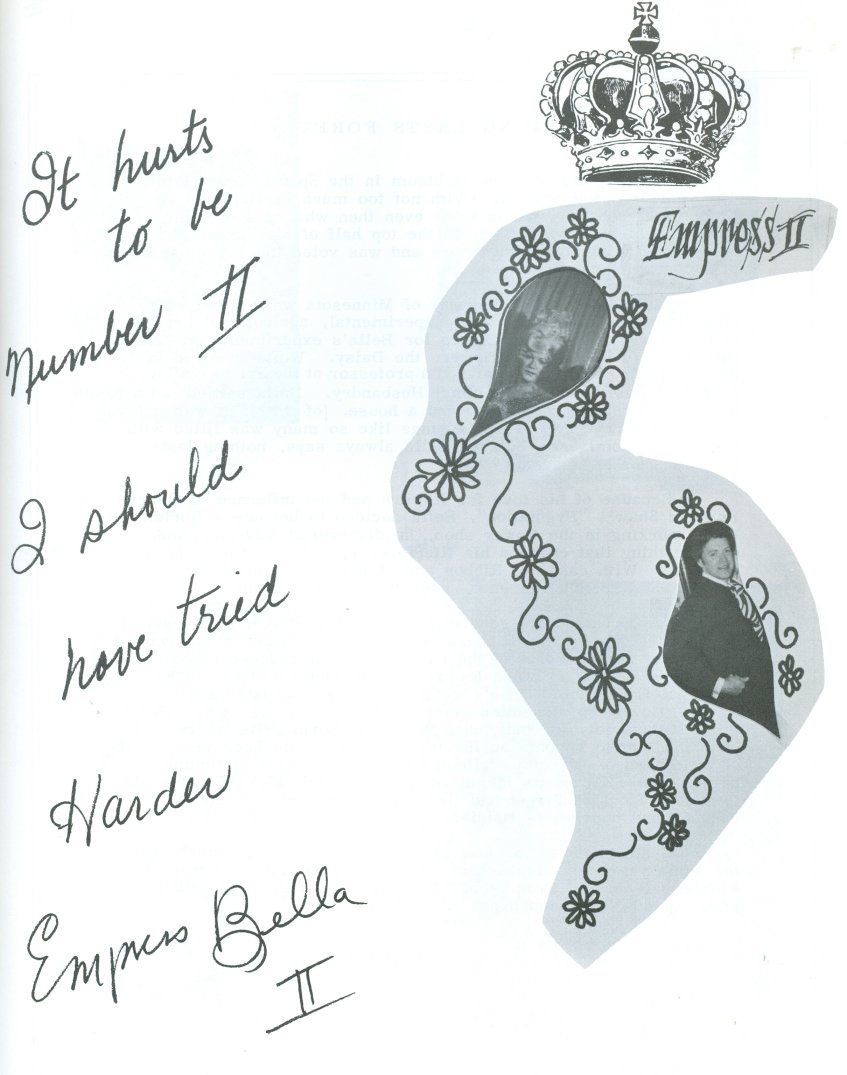 It hurts
to be
Number II
I should
have tried
Harder
Empress Bella
II
Empress II